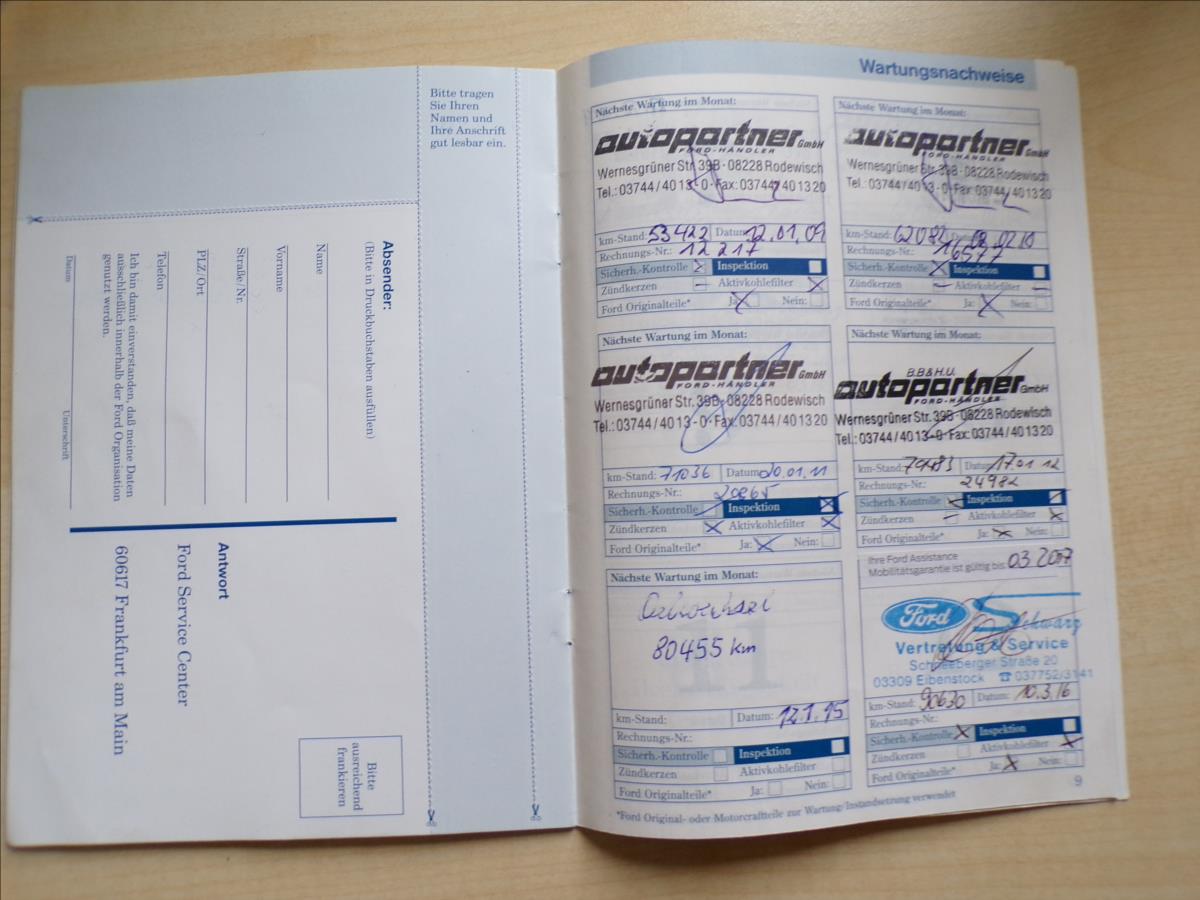 Bitte tragen
Sie Ihren
Namen und
Ihre Anschrift
gut lesbar ein.
Absender:
(Bitte in Druckbuchstaben ausfüllen)
Name
Vorname
Straße/Nr.
PLZ/Ort
Telefon
Ich bin damit einverstanden, daß meine Daten
ausschließlich innerhalb der Ford Organisation
genutzt werden.
Datum
Unterschrift
Antwort
Ford Service Center
60617 Frankfurt am Main
Bitte
ausreichend
frankieren
Wartungsnachweise
Nächste Wartung im Monat:
autopartner GmbH
FORD-HÄNDLER
Wernesgrüner Str. 39B · 08228 Rodewisch
Tel.: 03744/40 13-0 · Fax: 03744/40 13 20
km-Stand: 53422 Datum: 12.01.09
Rechnungs-Nr.: 12217
Sicherh.-Kontrolle Inspektion
Zündkerzen Aktivkohlefilter
Ford Originalteile* Ja: Nein:
Nächste Wartung im Monat:
autopartner GmbH
FORD-HÄNDLER
Wernesgrüner Str. 39B · 08228 Rodewisch
Tel.: 03744/40 13-0 · Fax: 03744/40 13 20
km-Stand: 62082 Datum: 02.10
Rechnungs-Nr.: 16577
Sicherh.-Kontrolle Inspektion
Zündkerzen Aktivkohlefilter
Ford Originalteile* Ja: Nein:
Nächste Wartung im Monat:
autopartner GmbH
FORD-HÄNDLER
Wernesgrüner Str. 39B · 08228 Rodewisch
Tel.: 03744/40 13-0 · Fax: 03744/40 13 20
km-Stand: 71036 Datum: 20.01.11
Rechnungs-Nr.: 20865
Sicherh.-Kontrolle Inspektion
Zündkerzen Aktivkohlefilter
Ford Originalteile* Ja: Nein:
Nächste Wartung im Monat:
B.B.&H.U.
autopartner GmbH
FORD-HÄNDLER
Wernesgrüner Str. 39B · 08228 Rodewisch
Tel.: 03744/40 13-0 · Fax: 03744/40 13 20
km-Stand: 79483 Datum: 17.01 12
Rechnungs-Nr.: 24982
Sicherh.-Kontrolle Inspektion
Zündkerzen Aktivkohlefilter
Ford Originalteile* Ja: Nein:
Nächste Wartung im Monat:
80455 km
km-Stand: Datum: 12.1.15
Rechnungs-Nr.:
Sicherh.-Kontrolle Inspektion
Zündkerzen Aktivkohlefilter
Ford Originalteile* Ja: Nein:
Ihre Ford Assistance
Mobilitätsgarantie ist gültig bis: 03.2017
Ford Schwarz
Vertretung & Service
Schneeberger Straße 20
03309 Eibenstock ☎ 037752/3141
km-Stand: 90630 Datum: 10.3.16
Rechnungs-Nr.:
Sicherh.-Kontrolle Inspektion
Zündkerzen Aktivkohlefilter
Ford Originalteile* Ja: Nein:
*Ford Original- oder Motorcraftteile zur Wartung/Instandsetzung verwendet
9